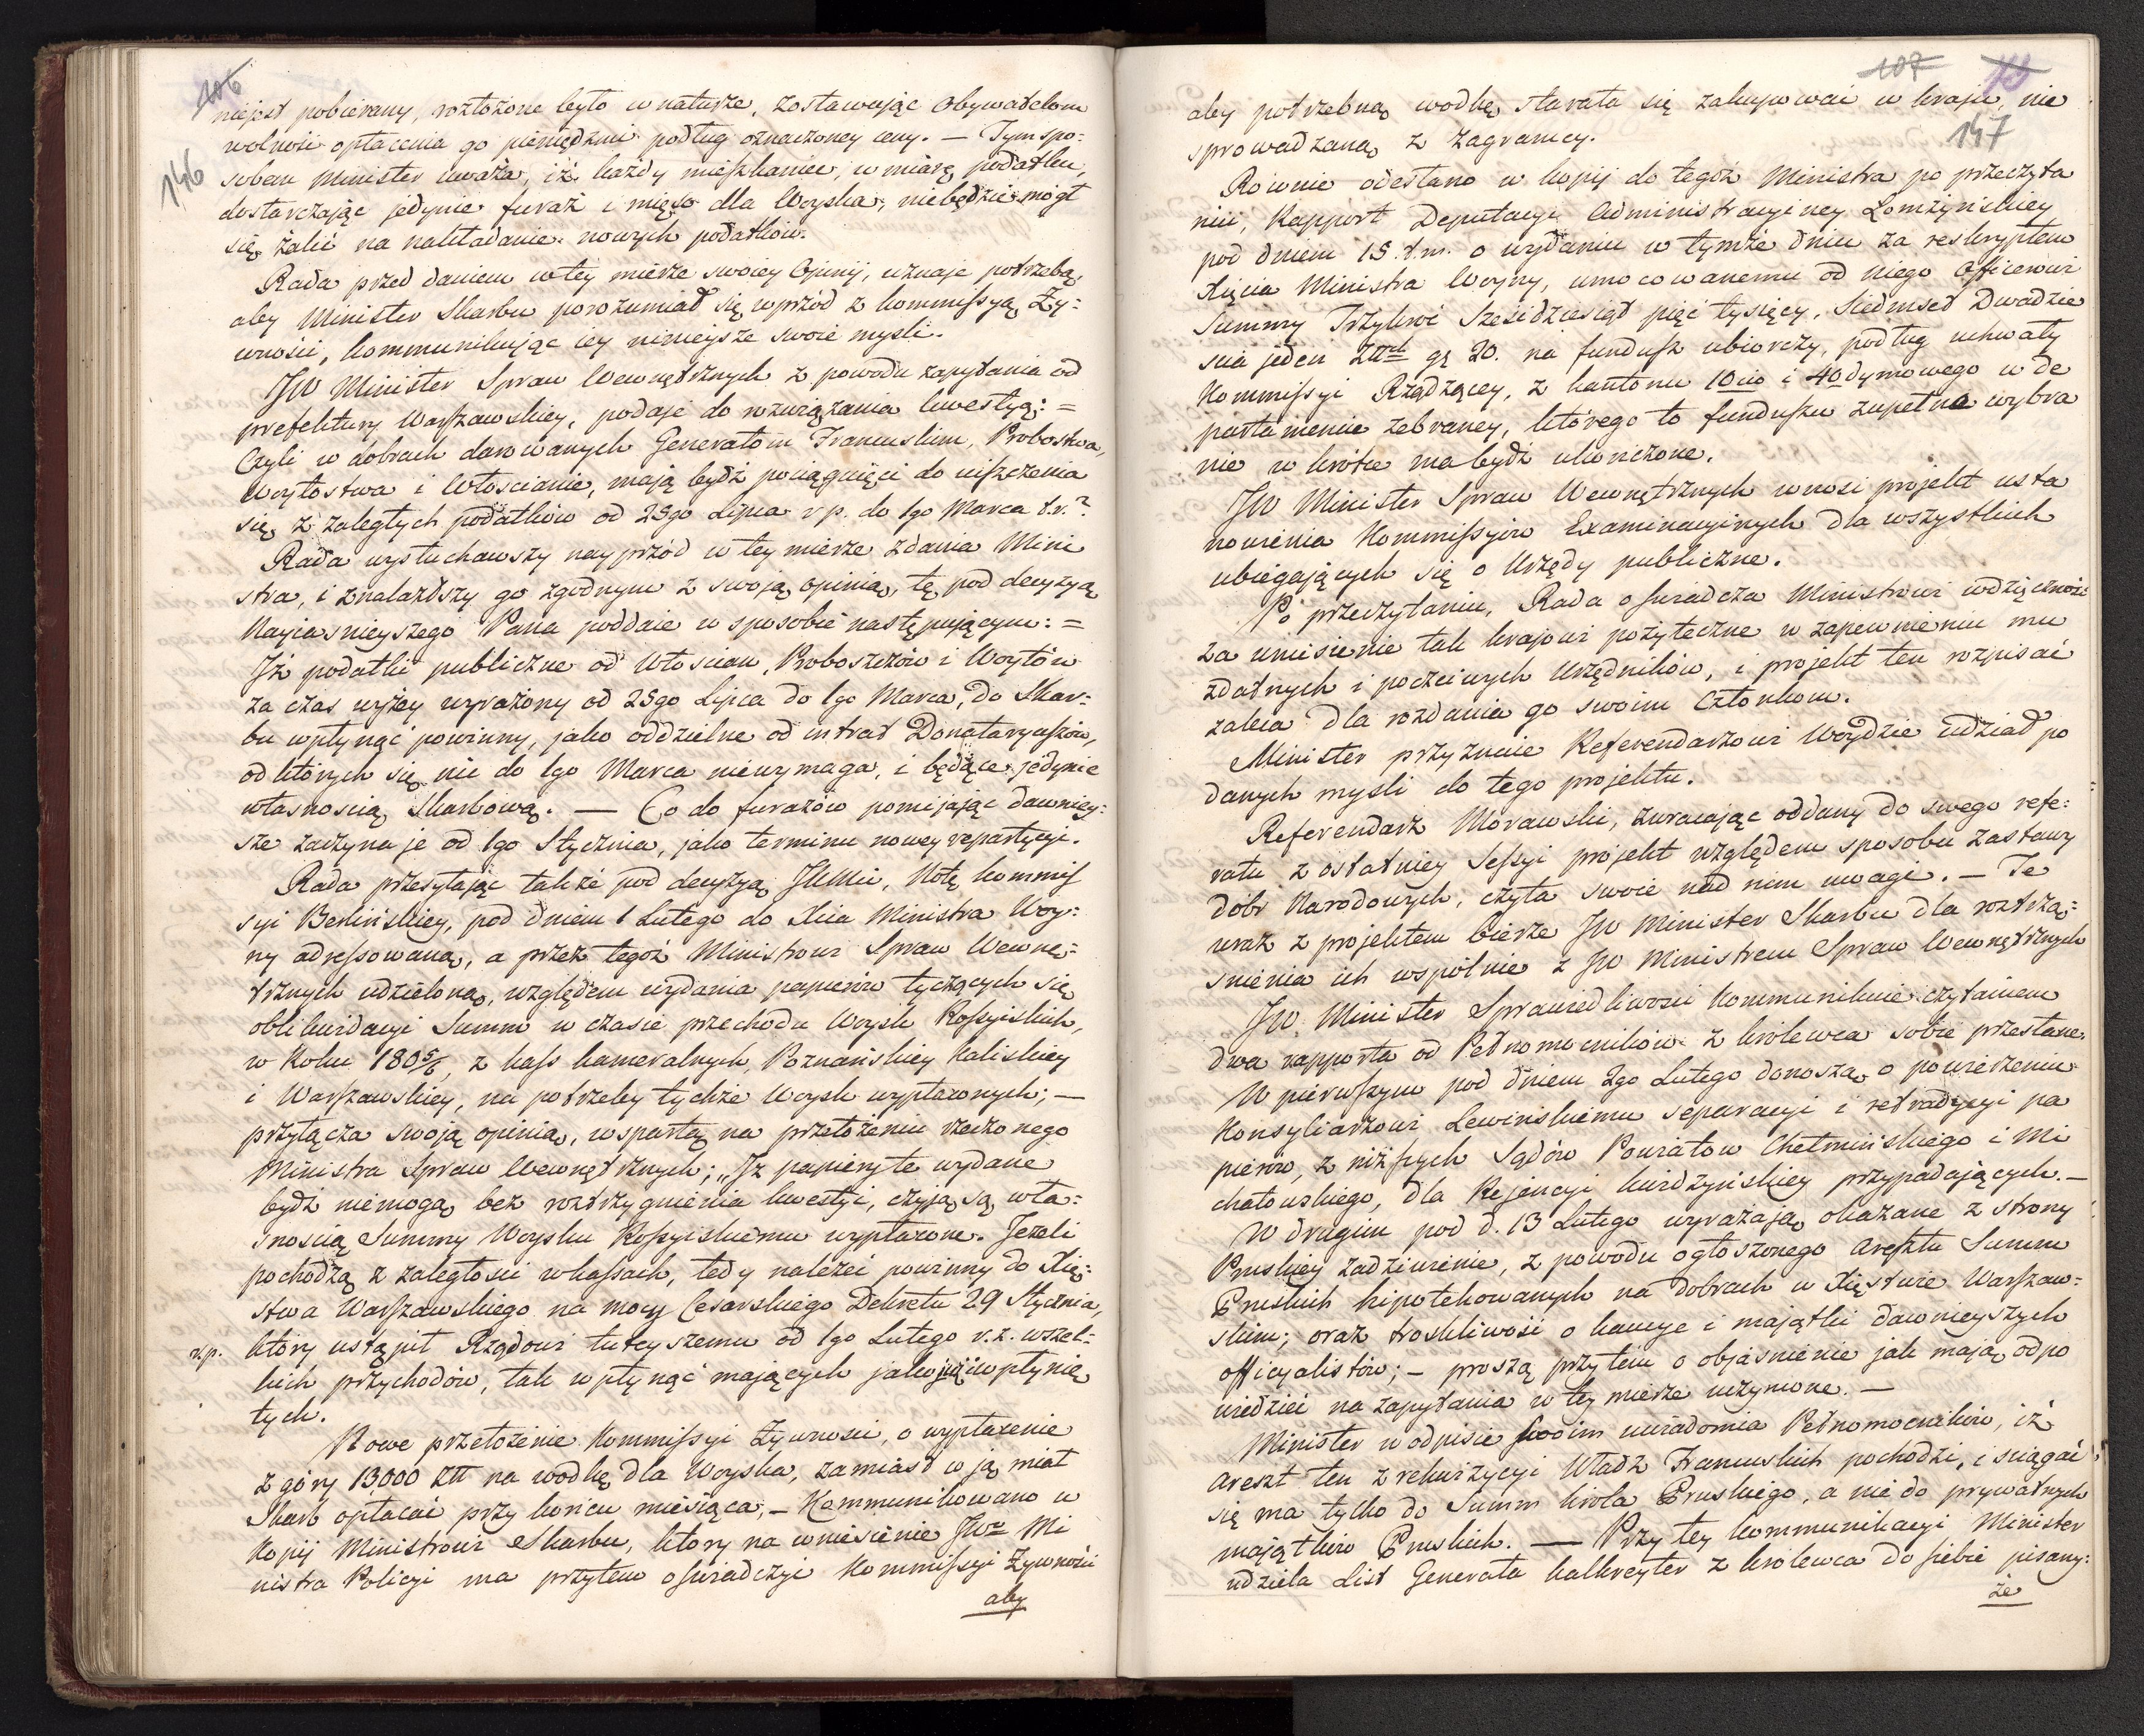 106
146
niejest pobierany, rozłożone było w naturze, zostawując Obywatelom
wolność opłacenia go pieniędzmi podług oznaczoney ceny. — Tym spo:
sobem Minister uważa, iż każdy mieszkaniec, w miarę podatku,
dostarczając jedynie furaż i mięso dla Woyska, niebędzie mógł
się żalić na nakładanie nowych podatków.
Rada przed daniem w tey mierze swoiey Opinij, uznaje potrzebą,
aby Minister Skarbu porozumiał się wprzód z kommissyą Ży:
wności, kommunikując iey ninieysze swoie myśli.
JW Minister Spraw Wewnętrznych z powodu zapytania od
prefektury Warszawskiey, podaje do rozwiązania kwestyą: =
Czyli w dobrach darowanych Generałom Francuskim, Probostwa,
Woytostwa i Włościanie, mają bydź pociągnięci do uiszczenia
się z zaległych podatków od 25go Lipca r.p. do 1go Marca t.r.?
Rada wysłuchawszy nayprzód w tey mierze zdania Mini
stra, i znalazłszy go zgodnym z swoją opinią, tę pod decyzyą
Nayiasnieyszego Pana poddaie w sposobie następującym: =
Iż podatki publiczne od Włościan, Proboszczów i Woytów
za czas wyżey wyrażony od 25go Lipca do 1go Marca, do Skar:
bu wpłynąć powinny, jako oddzielne od intrat Donataryuszów,
od których się nic do 1go Marca niewymaga, i będące jedynie
własnością Skarbową. — Co do furażów pomijając dawniey:
sze zaczyna je od 1go Stycznia, jako terminu nowey repartycyi.
Rada przesyłając także pod decyzyą JKMci, Notę kommis
syi Berlińskiey, pod dniem 1 Lutego do Xcia Ministra Woy:
ny adressowaną, a przez tegoż Ministrowi Spraw Wewnę:
trznych udzieloną, względem wydania papierów tyczących się
oblikwidacyi Summ w czasie przechodu Woysk Rossyiskich,
w Roku 1805/6, z kass kameralnych, Poznańskiey Kaliskiey
i Warszawskiey, na potrzeby tychże Woysk wypłaconych; —
przyłącza swoją opinią, wspartą na przełożeniu rzeczonego
Ministra Spraw Wewnętrznych; „Iż papiery te wydane
bydź niemogą bez rozstrzygnienia kwestyi, czyją są wła:
snością Summy Woysku Rossyiskiemu wypłacone. Jeżeli
pochodzą z zaległości w kassach, tedy należeć powinny do Xię:
stwa Warszawskiego na mocy Cesarskiego Dekretu 29 Stycznia,
r.p. który ustąpił Rządowi tuteyszemu od 1go Lutego r.z. wszel:
kich przychodów, tak wpłynąć mających jako już wpłynię
tych.
Nowe przełożenie Kommissyi Żywności, o wypłacenie
z góry 13,000 Złł na wodkę dla Woyska, zamiast co ją miał
Skarb opłacać przy końcu miesiąca, — Kommunikowano w
Kopij Ministrowi Skarbu, który na wniesienie JWo Mi
nistra Policyi ma przytem oświadczyć Kommissyi Żywności
aby
107
147
aby potrzebną wodkę starała się zakupować w kraju, nie
sprowadzaną z zagranicy.
Rownie odesłano w kopij do tegoż Ministra po przeczyta
niu, Rapport Deputacyi Administracyiney Łomżyńskiey
pod dniem 15 t.m. o wydaniu w tymże dniu za reskryptem
Xięcia Ministra Woyny, umocowanemu od niego Officerowi
Summy Trzykroć Sześćdziesiąt pięć tysięcy, Siedmset Dwadzie
ścia jeden Złłch gę 20. na fundusz ubiorczy, podług uchwały
Kommissyi Rządzącey, z kantonu 10cio i 40dymowego w de
partamencie zebraney, którego to funduszu zupełna wybra
nie w krótce ma bydź ukończone.
JW Minister Spraw Wewnętrznych wnosi projekt usta
nowienia Kommissyiow Examinacyinych dla wszystkich
ubiegających się o Urzędy publiczne.
Po przeczytaniu, Rada oświadcza Ministrowi wdzięczność
za uniesienie tak krajowi pożyteczne w zapewnieniu mu
zdatnych i poczciwych Urzędników, i projekt ten rozpisać
zaleca dla rozdania go swoim Członkom.
Minister przyznaie Referendarzowi Woydzie udział po
danych myśli do tego projektu.
Referendarz Morawski, zwracając oddany do swego refe:
ratu z ostatniey Sessyi projekt względem sposobu zastawy
dóbr Narodowych, czyta swoie nad nim uwagi. — Te
wraz z projektem bierze JW Minister Skarbu dla roztrzą:
śnienia ich wspólnie z JW Ministrem Spraw Wewnętrznych
JW. Minister Sprawiedliwości Kommunikuie czytaniem
dwa rapporta od Pełnomocników z królewca sobie przesłane.
W pierwszym pod dniem 2go Lutego donoszą o powierzeniu
Konsyliarzowi Lewinskiemu separacyi i retradycyi pa
pierów, z niższych Sądów Powiatow Chełmińskiego i Mi
chałowskiego, dla Rejencyi kwidzyńskiey przypadających. —
W drugim pod d. 13 Lutego wyrażają okazane z strony
Pruskiey zadziwienie, z powodu ogłoszonego aresztu Summ
Pruskich hipotekowanych na dobrach w Xięstwie Warszaw:
skim; oraz troskliwość o kaucye i majątki dawnieyszych
officyalistów; — proszą przytem o objaśnienie jak mają odpo
wiedzieć na zapytania w tey mierze uczynione. —
Minister w odpisie swoim uwiadomia Pełnomocników, iż
areszt ten z rekwizycyi Władz Francuskich pochodzi, i ściągać
się ma tylko do Summ króla Pruskiego, a nie do prywatnych
majątków Pruskich. — Przy tey kommunikacyi Minister
udziela List Generała kalkreyter z królewca do siebie pisany:
że